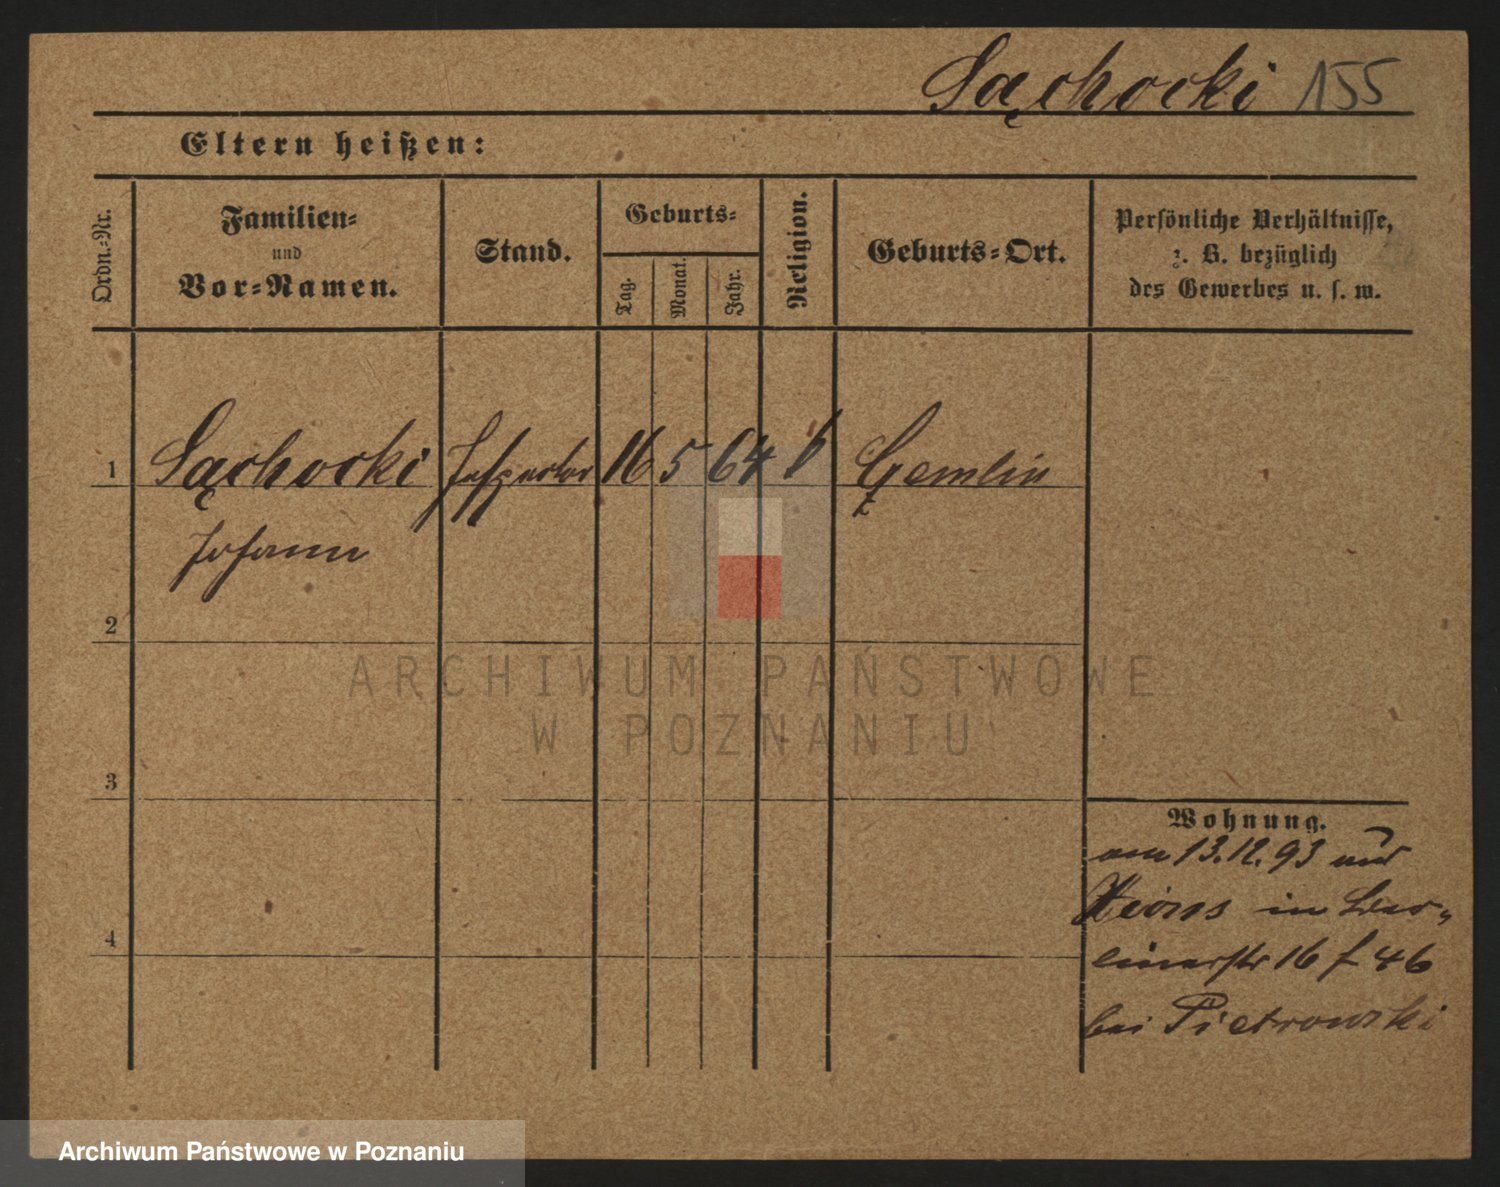 Sąchocki 155
Eltern heißen:
Ordn.-Nr.
Familien-
und
Vor-Namen.
Stand.
Geburts-
Tag.
Monat.
Jahr.
Religion.
Geburts-Ort.
Persönliche Verhältnisse,
z. B. bezüglich
des Gewerbes u. s. w.
1 Sąchocki Inspector 16 5 64 Gemlin
Johann
2
3
4
Wohnung.
am 13.12.93
in Ber-
linerstr 16 46
bei Pietrowski
ARCHIWUM PAŃSTWOWE
W POZNANIU
Archiwum Państwowe w Poznaniu